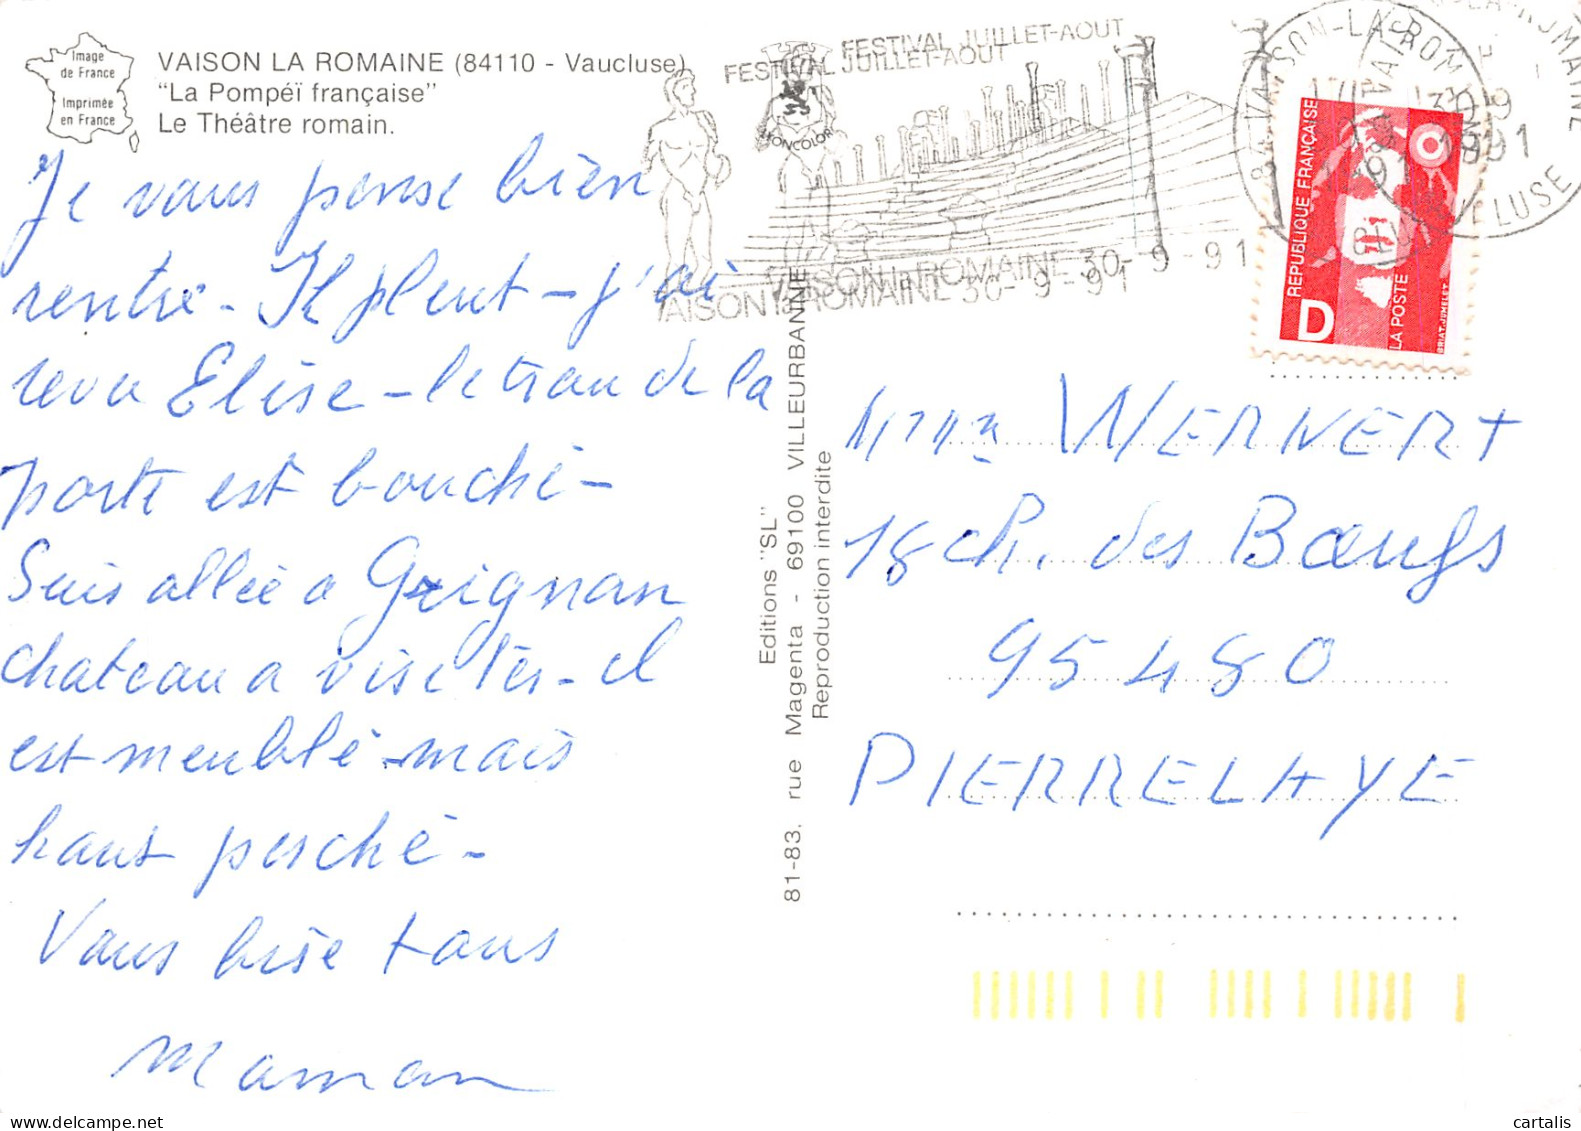 Image
de France
Imprimée
en France
VAISON LA ROMAINE (84110 - Vaucluse)
"La Pompéï française"
Le Théâtre romain.
Je vous pense bien
rentré - Il pleut - j'ai
revu Elise - le trou de la
porte est bouché -
Suis allée a Grignan
chateau a visiter - il
est meublé - mais
haut perché -
Vous bise tous
Maman
FESTIVAL JUILLET-AOUT
FESTIVAL JUILLET-AOUT
MONCOLOR
VAISON la ROMAINE 30 - 9 - 91
VAISON la ROMAINE 30 - 9 - 91
84 VAISON-LA-ROMAINE
VAUCLUSE
30 9
1991
REPUBLIQUE FRANÇAISE
D
LA POSTE
BRIAT-JUMELET
Editions "SL"
81-83, rue Magenta - 69100 VILLEURBANNE
Reproduction interdite
Mme WERNERT
18 ch. des Bœufs
95480
PIERRELAYE
cartalis